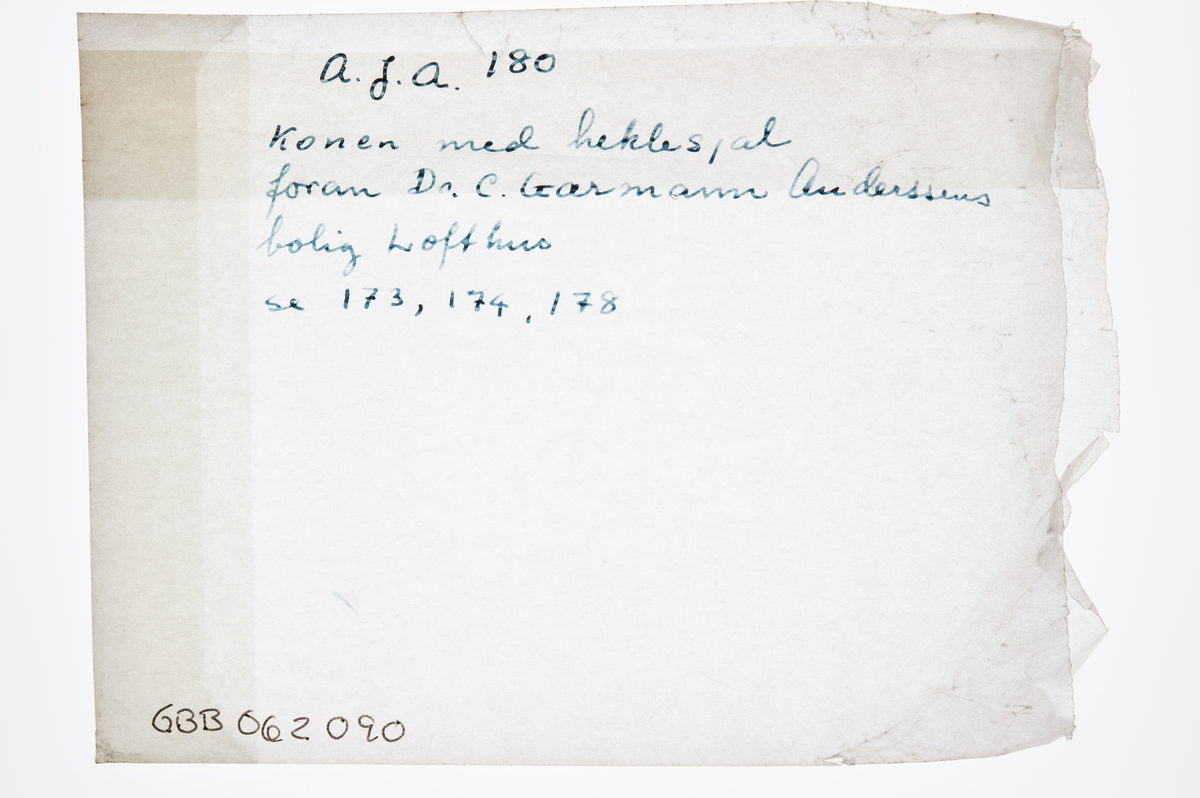 A.J.A. 180
Konen med heklesjal
foran Dr. C. Garmann Anderssens
bolig Lofthus
se 173, 174, 178
GBB 062 090